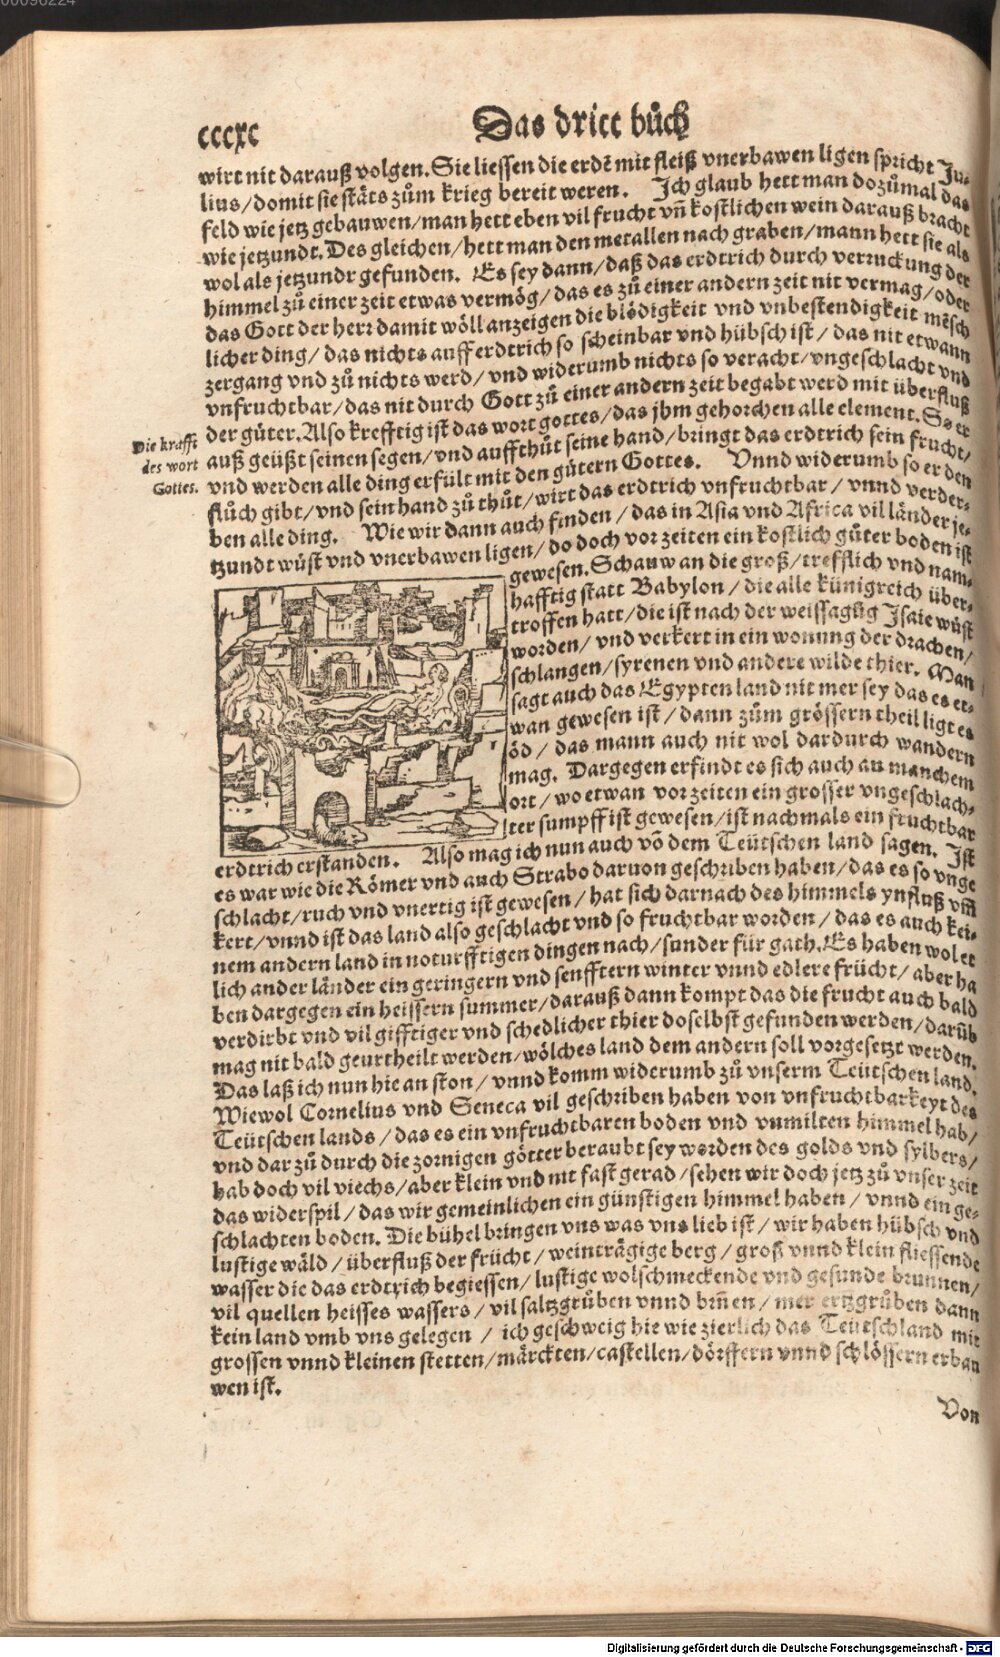 cccxc
Das dritt bůch
wirt nit darauß volgen. Sie liessen die erdē mit fleiß vnerbawen ligen spricht Ju-
lius / domit sie stäts zům krieg bereit weren. Ich glaub hett man dozůmal das
feld wie jetz gebauwen / man hett eben vil frucht vñ kostlichen wein darauß bracht
wie jetzundt. Des gleichen / hett man den metallen nach graben / mann hett sie als
wol als jetzundt gefunden. Es sey dann / daß das erdtrich durch verruckung der
himmel zů einer zeit etwas vermög / das es zů einer andern zeit nit vermag / oder
das Gott der herr damit wöll anzeigen die blödigkeit vnd vnbestendigkeit mēsch
licher ding / das nichts auff erdtrich so scheinbar vnd hübsch ist / das nit etwann
zergang vnd zů nichts werd / vnd widerumb nichts so veracht / vngeschlacht vnd
vnfruchtbar / das nit durch Gott zů einer andern zeit begabt werd mit überfluß
der güter. Also krefftig ist das wort gottes / das jhm gehorchen alle element. So er
Die krafft
des wort
Gottes.
auß geüßt seinen segen / vnd auffthůt seine hand / bringt das erdtrich sein frucht /
vnd werden alle ding erfült mit den gütern Gottes. Vnnd widerumb so er den
flůch gibt / vnd sein hand zů thůt / wirt das erdtrich vnfruchtbar / vnnd verder-
ben alle ding. Wie wir dann auch finden / das in Asia vnd Africa vil länder je-
tzundt wüst vnd vnerbawen ligen / do doch vor zeiten ein kostlich güter boden ist
gewesen. Schauw an die groß / trefflich vnd nam-
hafftig statt Babylon / die alle künigreich über-
troffen hatt / die ist nach der weissagūg Isaie wüst
worden / vnd verkert in ein wonung der drachen /
schlangen / syrenen vnd andere wilde thier. Man
sagt auch das Egypten land nit mer sey das es et-
wan gewesen ist / dann zům grössern theil ligt es
öd / das mann auch nit wol dardurch wandern
mag. Dargegen erfindt es sich auch an manchem
ort / wo etwan vor zeiten ein grosser vngeschlach-
ter sumpff ist gewesen / ist nachmals ein fruchtbar
erdtrich erstanden. Also mag ich nun auch võ dem Teütschen land sagen. Ist
es war wie die Römer vnd auch Strabo daruon geschriben haben / das es so vnge
schlacht / ruch vnd vnertig ist gewesen / hat sich darnach des himmels ynfluß vm̄
kert / vnnd ist das land also geschlacht vnd so fruchtbar worden / das es auch kei-
nem andern land in noturfftigen dingen nach / sunder für gath. Es haben wol et
lich ander länder ein geringern vnd senfftern winter vnnd edlere frücht / aber ha
ben dargegen ein heissern summer / darauß dann kompt das die frucht auch bald
verdirbt vnd vil gifftiger vnd schedlicher thier doselbst gefunden werden / darūb
mag nit bald geurtheilt werden / wölches land dem andern soll vorgesetzt werden.
Das laß ich nun hie an ston / vnnd komm widerumb zů vnserm Teütschen land.
Wiewol Cornelius vnd Seneca vil geschriben haben von vnfruchtbarkeyt des
Teütschen lands / das es ein vnfruchtbaren boden vnd vnmilten himmel hab /
vnd dar zů durch die zornigen götter beraubt sey worden des golds vnd sylbers /
hab doch vil viechs / aber klein vnd nit fast gerad / sehen wir doch jetz zů vnser zeit
das widerspil / das wir gemeinlichen ein günstigen himmel haben / vnnd ein ge-
schlachten boden. Die bühel bringen vns was vns lieb ist / wir haben hübsch vnd
lustige wäld / überfluß der frücht / weinträgige berg / groß vnnd klein fliessende
wasser die das erdtrich begiessen / lustige wolschmeckende vnd gesunde brunnen /
vil quellen heisses wassers / vil saltzgrůben vnnd brñen / mer ertzgrůben dann
kein land vmb vns gelegen / ich geschweig hie wie zierlich das Teütschland mit
grossen vnnd kleinen stetten / märckten / castellen / dörffern vnnd schlössern erbau
wen ist.
Von
Digitalisierung gefördert durch die Deutsche Forschungsgemeinschaft - DFG